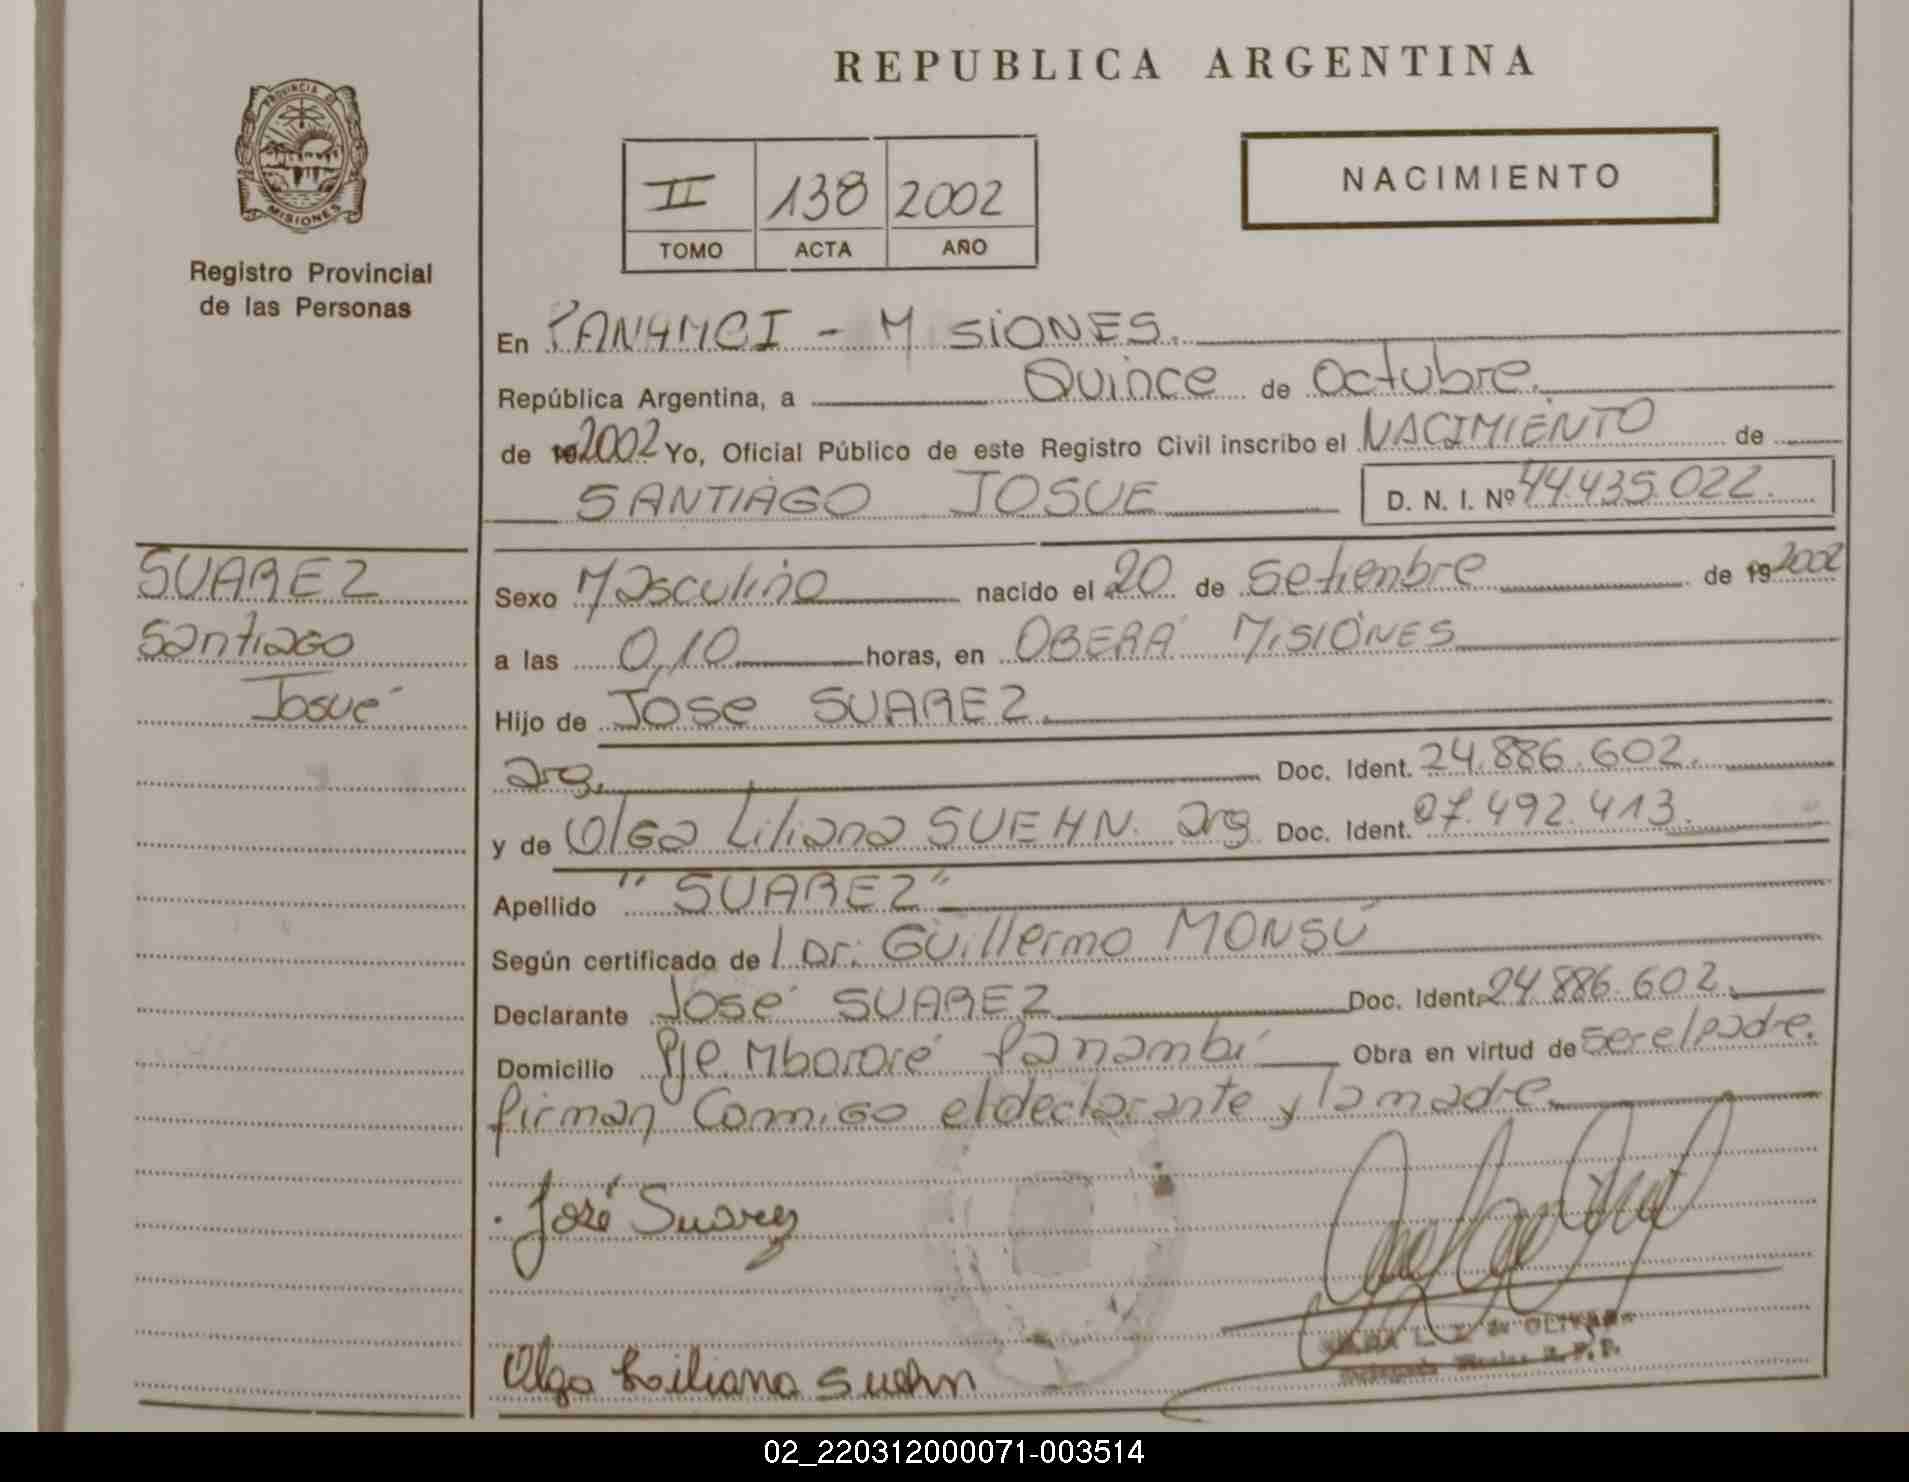 REPUBLICA ARGENTINA
PROVINCIA DE
MISIONES
Registro Provincial
de las Personas
II 138 2002
TOMO ACTA AÑO
NACIMIENTO
En PANAMBI - MISIONES.
República Argentina, a Quince de Octubre.
de 2002 Yo, Oficial Público de este Registro Civil inscribo el NACIMIENTO de
SANTIAGO JOSUE D. N. I. Nº 44.435.022.
SUAREZ
Santiago
Josué
Sexo Masculino nacido el 20 de Setiembre de 19 2002
a las 0,10 horas, en OBERA MISIONES
Hijo de JOSe SUAREZ.
arg. Doc. Ident. 24.886.602.
y de Olga Liliana SUEHN. arg Doc. Ident. 07.492.413.
Apellido "SUAREZ"
Según certificado de Dr. Guillermo MONSÚ
Declarante José SUAREZ Doc. Ident. 24.886.602.
Domicilio Pje Mbororé Panambí Obra en virtud de ser el padre.
firman Conmigo el declarante y la madre.
José Suarez
Olga Liliana Suehn
L. de OLIVERA
R. P. P.
02_220312000071-003514